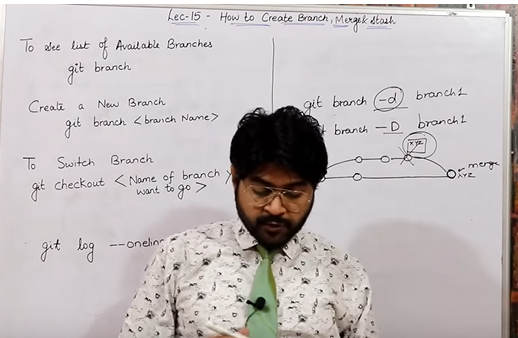 Lec-15 - How to Create Branch, Merge & Stash
To see list of Available Branches
git branch
Create a New Branch
git branch <branch Name>
To Switch Branch
git checkout <Name of branch want to go>
git log --oneline
git branch -d branch1
branch -D branch1
XYZ
merge
XYZ